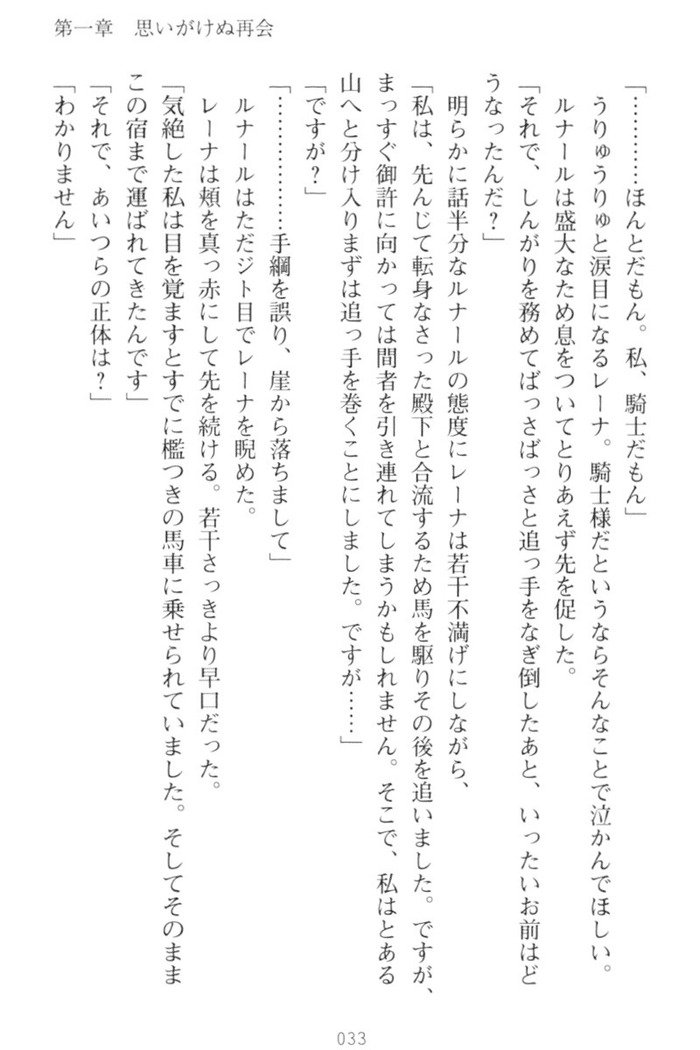 第一章　思いがけぬ再会
「…………ほんとだもん。私、騎士だもん」
　うりゅうりゅと涙目になるレーナ。騎士様だというならそんなことで泣かんでほしい。
　ルナールは盛大なため息をついてとりあえず先を促した。
「それで、しんがりを務めてばっさばっさと追っ手をなぎ倒したあと、いったいお前はど
うなったんだ？」
　明らかに話半分なルナールの態度にレーナは若干不満げにしながら、
「私は、先んじて転身なさった殿下と合流するため馬を駆りその後を追いました。ですが、
まっすぐ御許に向かっては間者を引き連れてしまうかもしれません。そこで、私はとある
山へと分け入りまずは追っ手を巻くことにしました。ですが……」
「ですが？」
「………………手綱を誤り、崖から落ちまして」
　ルナールはただジト目でレーナを睨めた。
　レーナは頬を真っ赤にして先を続ける。若干さっきより早口だった。
「気絶した私は目を覚ますとすでに檻つきの馬車に乗せられていました。そしてそのまま
この宿まで運ばれてきたんです」
「それで、あいつらの正体は？」
「わかりません」
033